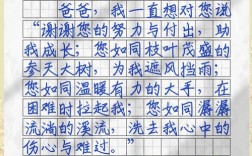 爸爸，我一直想对您说
“谢谢您的努力与付出，助
我成长；您如同枝叶茂盛的
参天大树，为我遮风挡雨；
您如同温暖有力的大手，在
困难时拉起我；您如同潺潺
流淌的溪流，洗去我心中的
伤心与难过。”